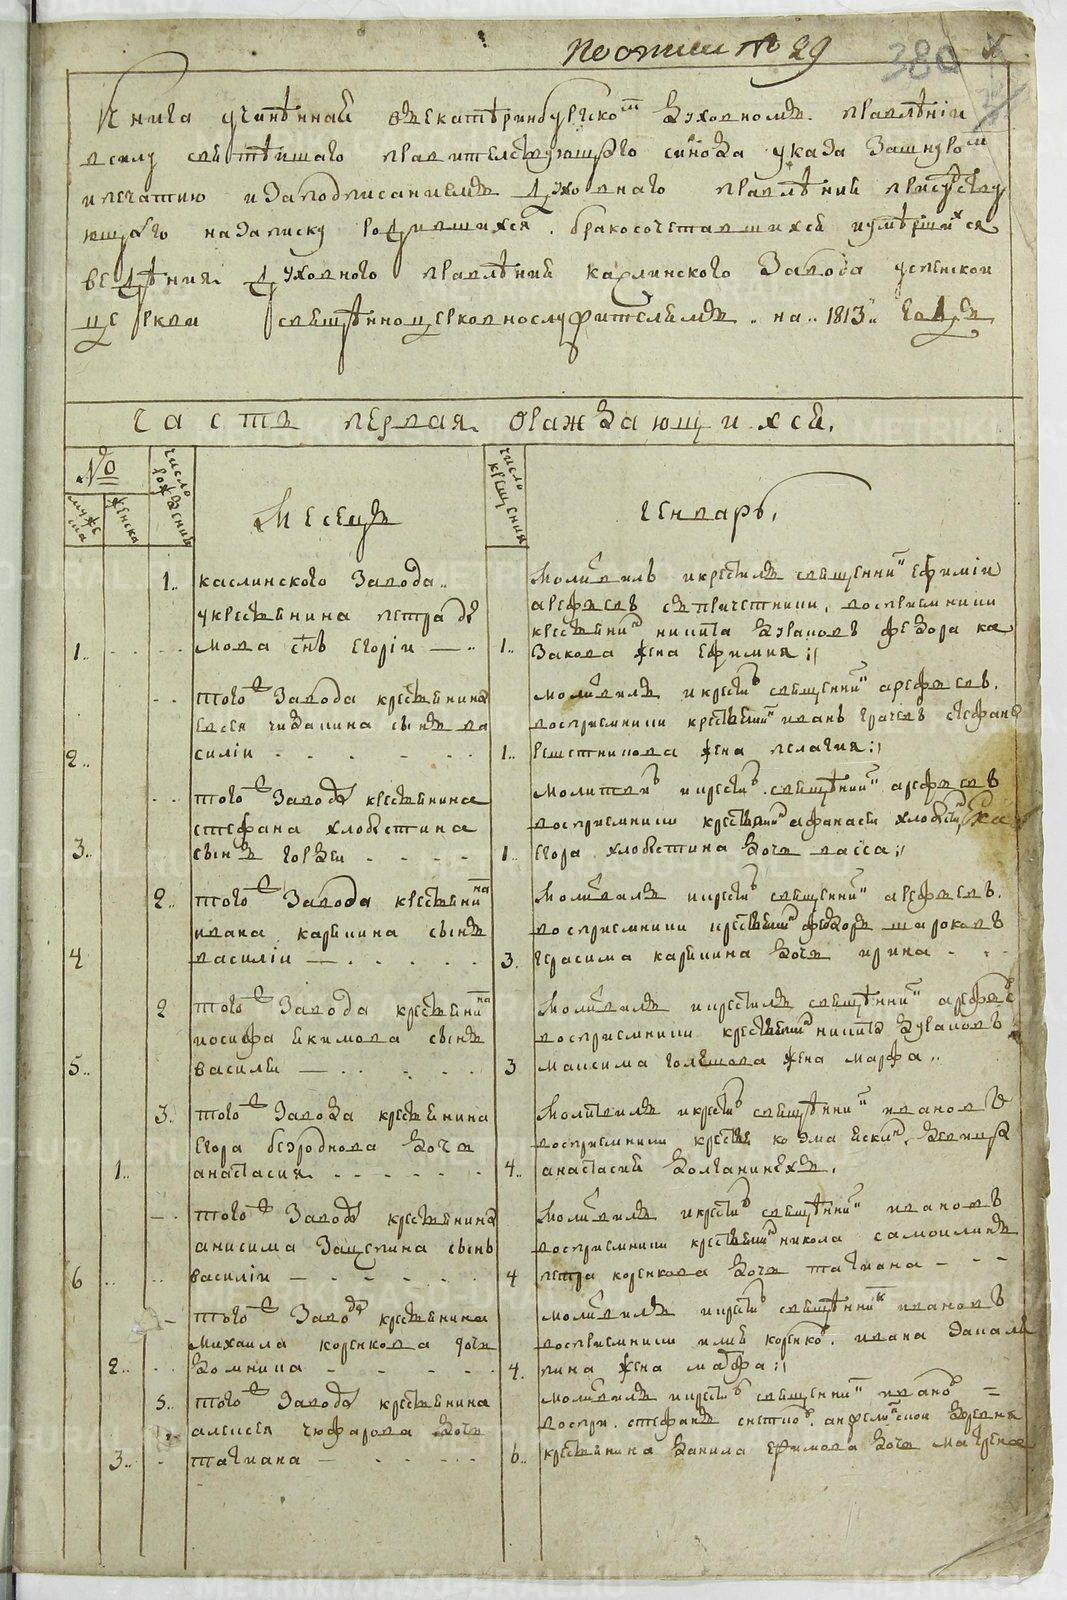 По описи № 29
380
Книга учинѣнная въ екатѣринбургском духовномъ правлѣнiи
в силу святѣйшаго правителствующаго синода указа за шнуром
и печатию и за подписаниемъ духовнаго правлѣния присуствую
ющаго на записку родившихся бракосочетавшихся и умѣрших ся
ведѣния духовного правлѣния каслинского завода успенской
церкви свящѣнноцерковнослужителямъ на 1813 годъ
часть первая о раждающихся.
№
муже
ска
женска
число рождения
Месецъ
число крещения
генварь,
1.. каслинского завода..
у крестьянина петра
1.. мова сынъ егорiи
молитвилъ и крестилъ священник ефимiи
арефьевъ съ причетники, восприемники
крестьянин никита дурапов федора ка
1.. закова жена ефимия
того завода крестьянина
елесея сынъ ва
2.. силiи
молитвилъ и крестил священник арефьевъ.
восприемники крестьянин иванъ грачевъ стефана
1.. решетникова жена пелагия
того завода крестьянина
стефана хлобыстина
3.. сынъ гордеи
молитвил и крестил свящѣнник арефьевъ
восприемники крестьянин афанасеи хлобыстин
1.. егора хлобыстина дочь васса
2.. того завода крестьянина
ивана карпина сынъ
4 василiи
молитвилъ и крестил священник арефьевъ.
восприемники крестьянин федоръ широковъ
3. герасима карпина дочь ирина
2 того завода крестьянина
иосифа екимова сынъ
5.. василеи
молитвилъ и крестилъ свящѣнник арефьев
восприемники крестьянин никита
3 максима голешова жена марфа..
3. того завода крестьянина
егора безроднова дочь
1.. анастасия
молитвилъ и крестил свящѣнник ивановъ
восприемники кресть козма
4.. анастасия долганинехъ.
того завода крестьянина
анисима защепина сынъ
6 василiи
молитвилъ и крестил свящѣнник ивановъ
восприемники крестьянин никола самоилинъ
4 петра коренкова дочь татиана
того завода крестьянина
михаила коренкова дочь
2.. домника
молитвилъ и крестил свящѣнник ивановъ
восприемники илия коренков. ивана
4. пина жена марфа
5.. того завода крестьянина
алексея чюфарова дочь
3.. татиана
молитвилъ и крестил священник иванов
воспри. стефанъ
6.. крестьянина данила ефимова дочь матрена